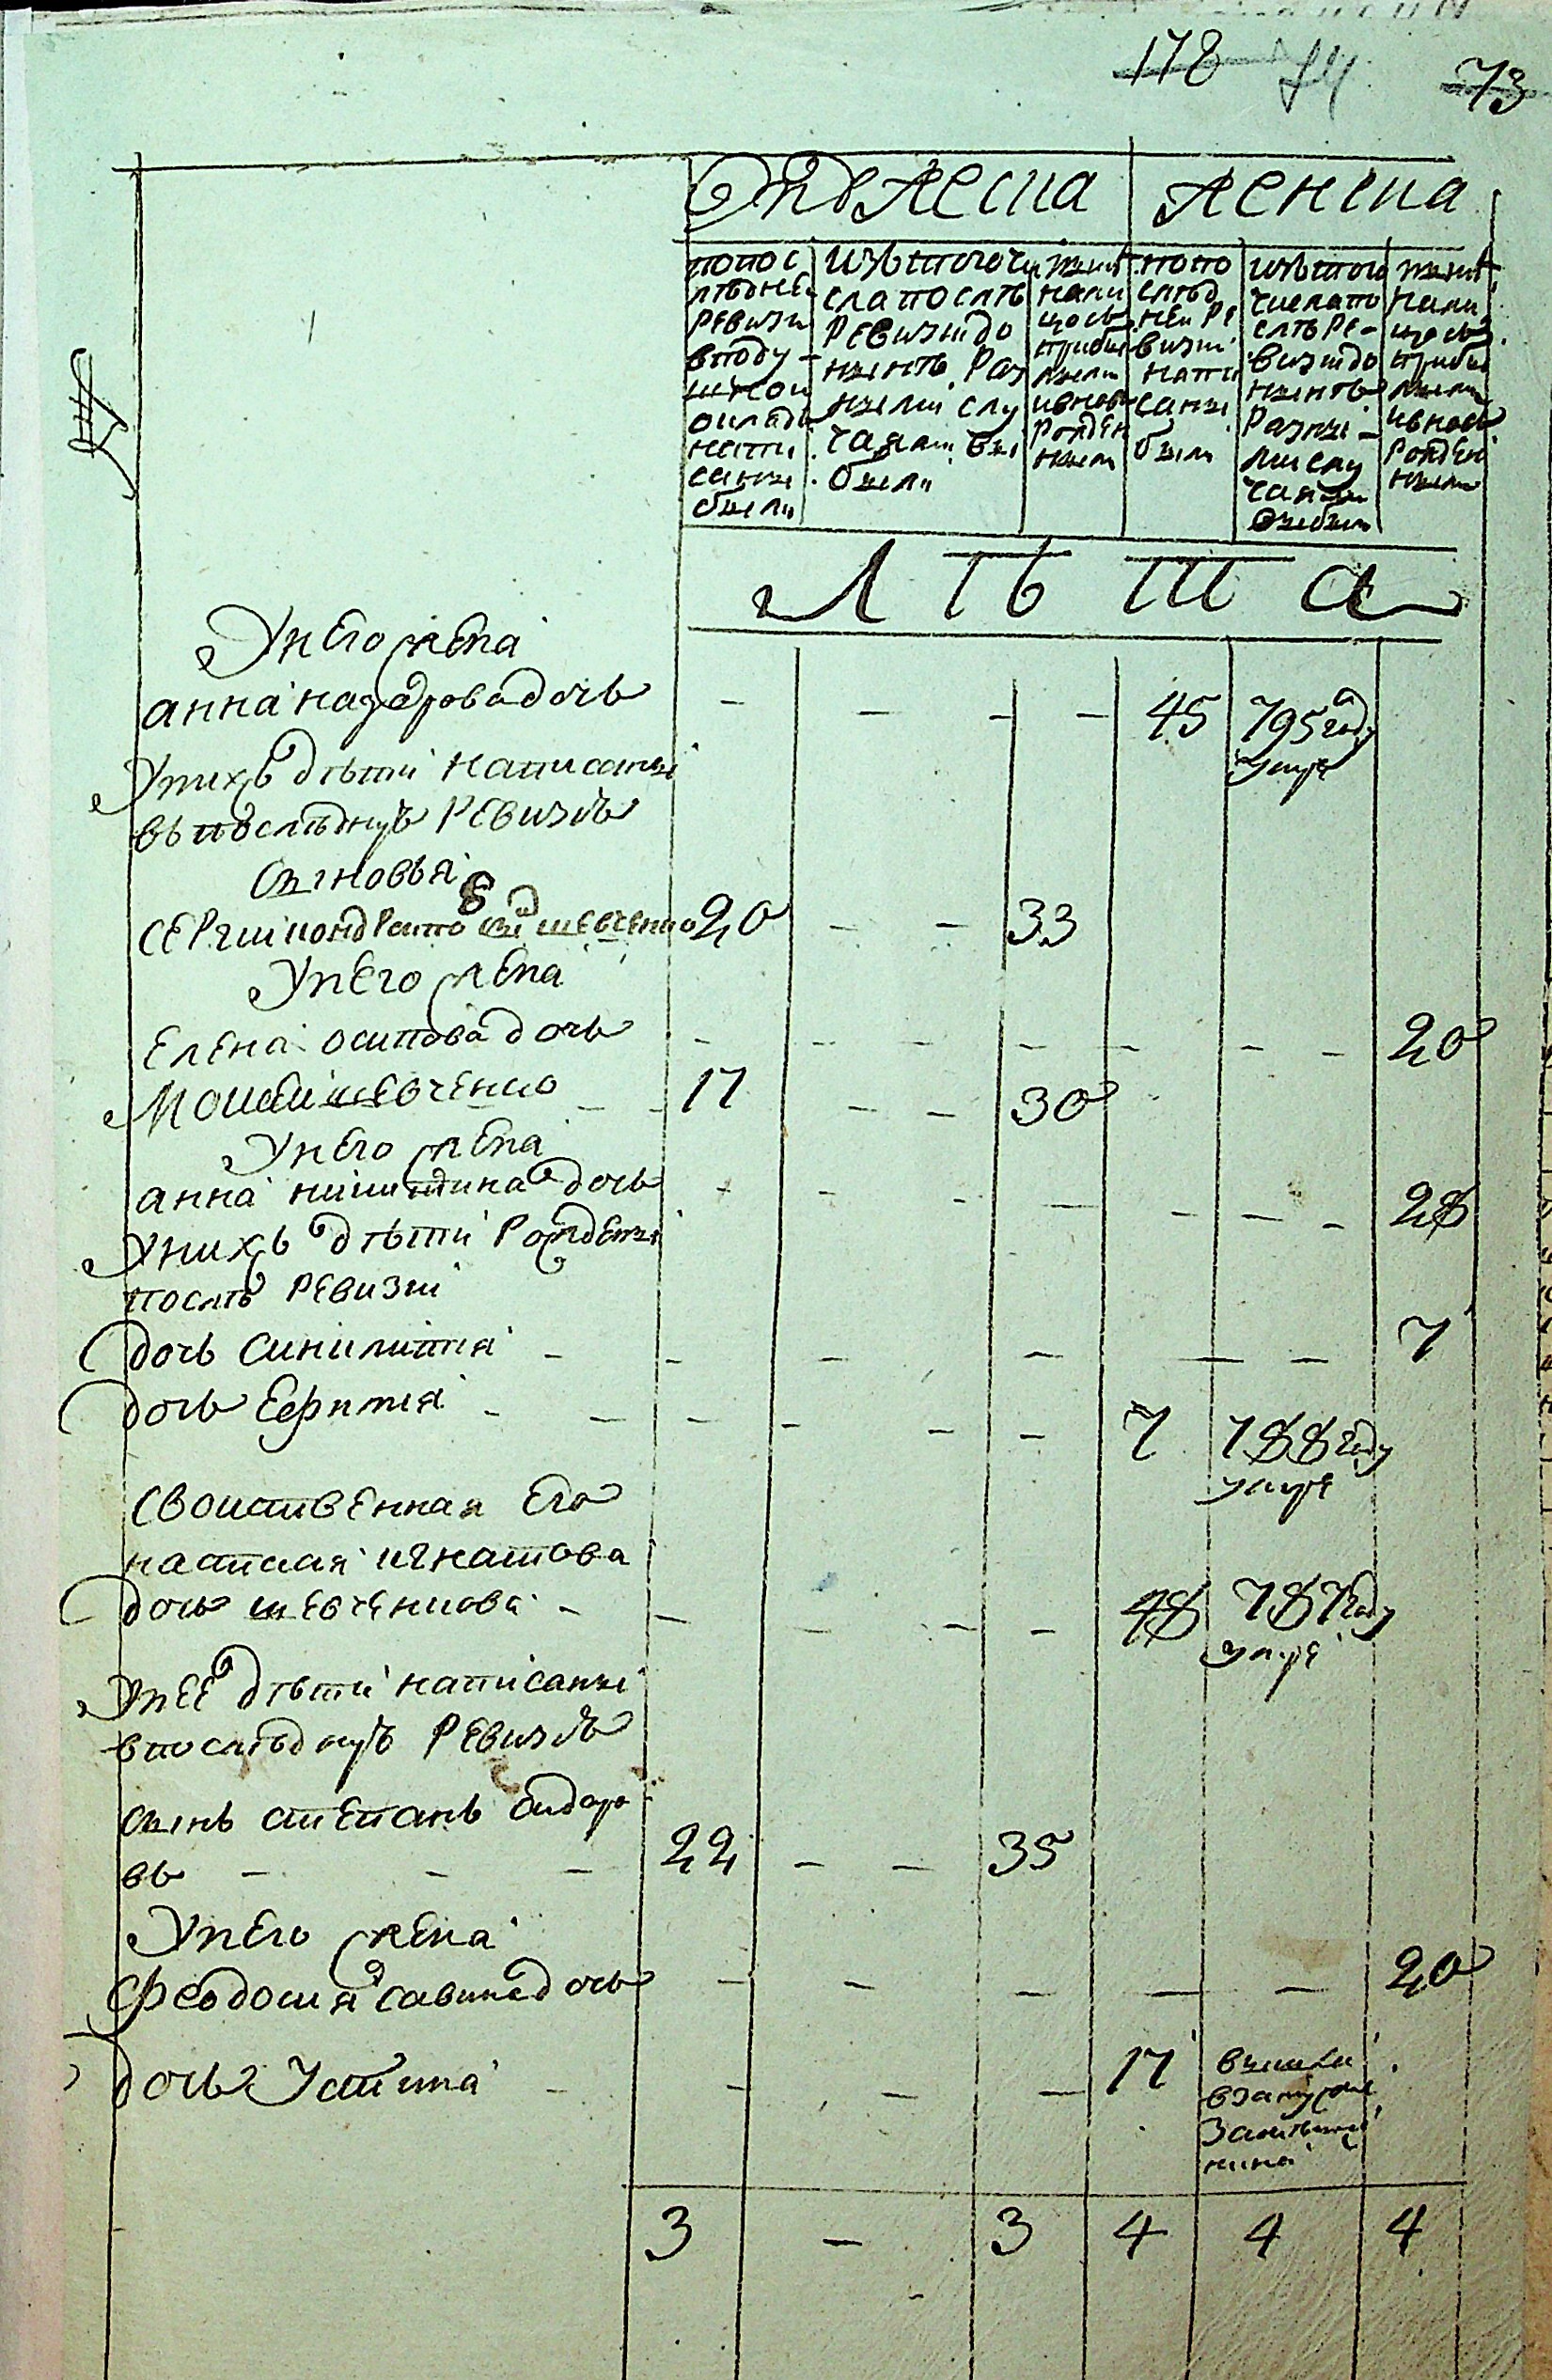 178 74 73
Мужеска женска
попос
лѣдней
ревизи
вподу
шнѡи
окладѣ
напи
саны
были
изътогочи
сла послѣ
ревизіи до
нынѣ раз
ными слу
чаями вы
были
нынѣ
нали
цосъ
прибы
лыми
ивново
рожден
ными
попо
слѣд
ней ре
визіи
напи
саны
были
изътого
числапо
слѣ ре-
визіидо
нынѣ
разны-
мислу
чаями
выбыли
нынѣ
нали
цосъ
прибы
лыми
ивново
рожден
ными
Л ѣ т а
У него жена
анна назарова дочь - - - - 45 795 году
умре
У нихъ дѣти написаны
въ последнуѣ ревизіѣ
Сыновья
Сергии кондратовы шевченко 20 - - 33
У него жена
Елена осипова дочь - - - - - - - 20
Моисеи шевченко - - 17 - - 30
У него жена
анна никитина дочь - - - - - - - 28
У нихъ дѣти рождены
послѣ ревизіи
дочь синклитія - - - - - - 7
дочь Ефимія - - - - - - 7 788 году
умре
своиственная его
настасія игнатова
дочь шевченкова - - - - - 48 787 году
умре
У нее дѣти написаны
впоследнуѣ ревизіѣ
сынъ степанъ сидоро
въ - - - 22 - - 35
У него жена
Феодосия савина дочь - - - - - 20
дочь Устина - - - - 17 вышла
взамуже

3 - 3 4 4 4